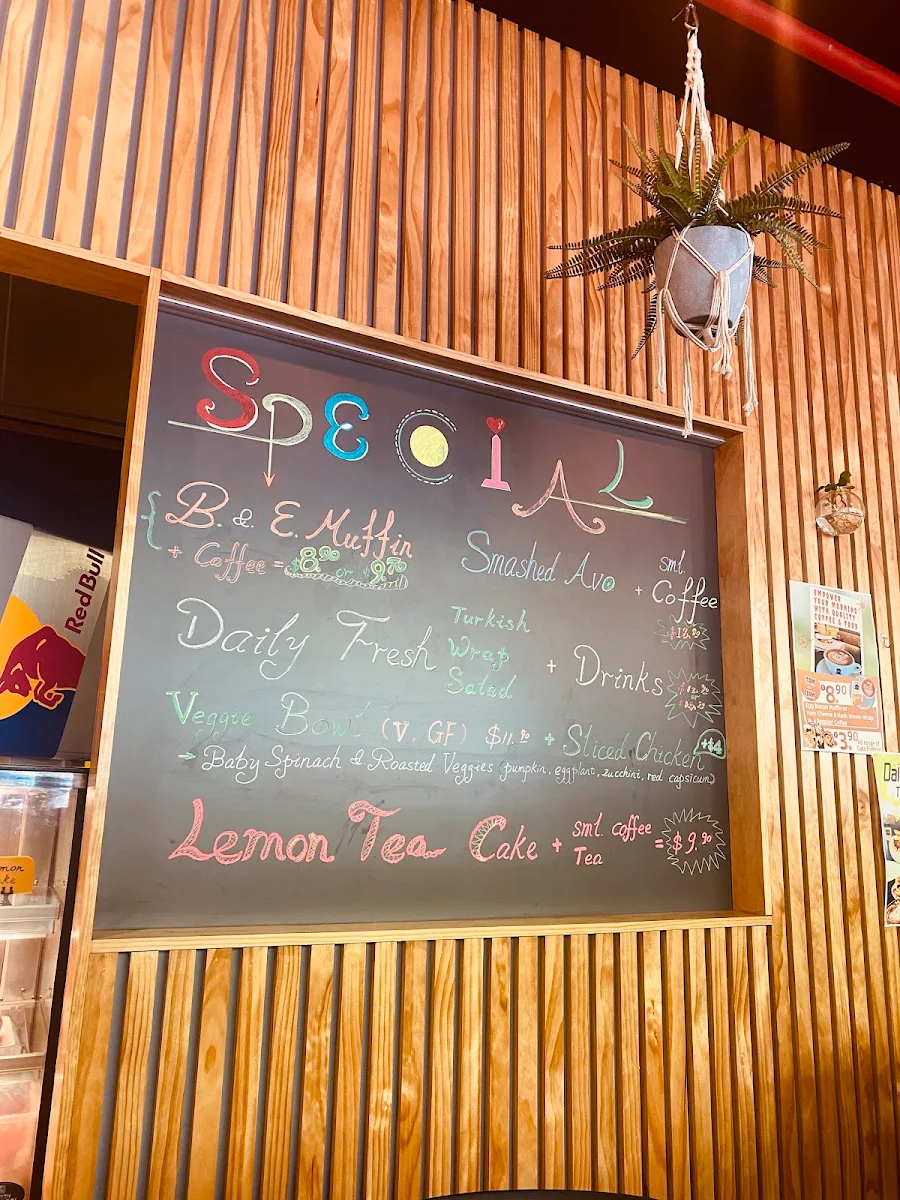 SPECIAL
B. & E. Muffin
+ Coffee = $8.90 or $9.70
Smashed Avo + sml. Coffee
Daily Fresh Turkish Wrap Salad + Drinks
Veggie Bowl (V. GF) $11.90 + Sliced Chicken +$4
→ Baby Spinach & Roasted Veggies (pumpkin, eggplant, zucchini, red capsicum)
Lemon Tea Cake + sml. coffee Tea = $9.90
RedBull
EMPOWER
YOUR MORNING
WITH QUALITY
COFFEE & FOOD
$8.90
Egg Bacon Muffin or
$3.90
Dai